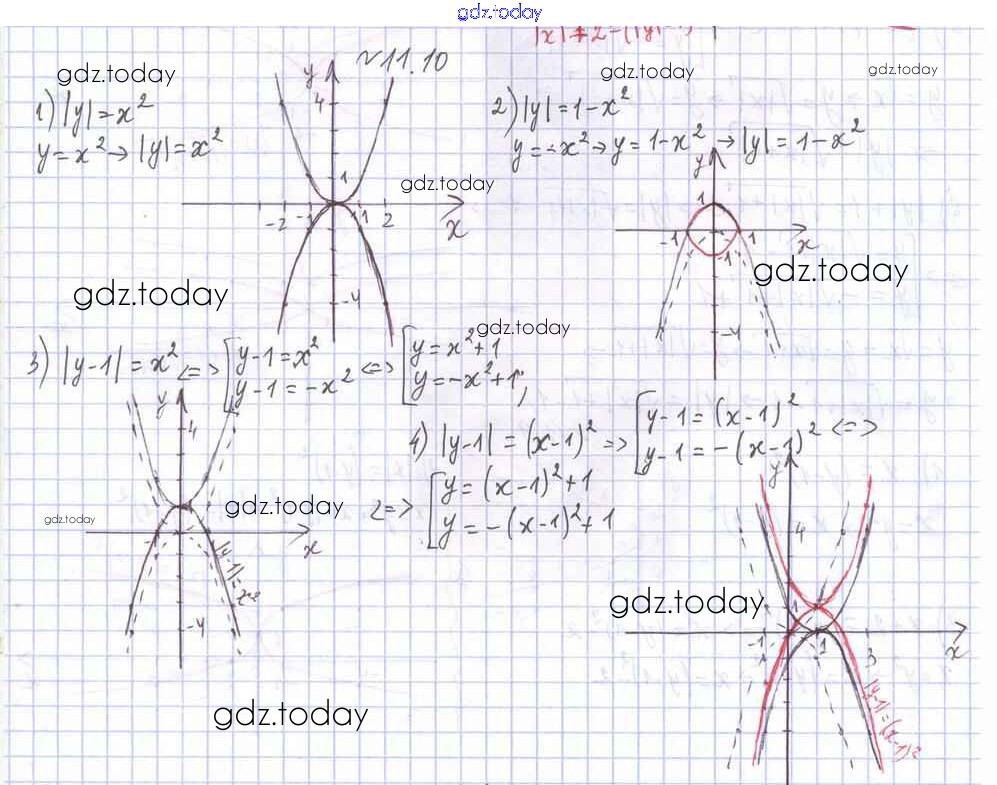 gdz.today
|x|+2-(|y|
№11.10
gdz.today
gdz.today
gdz.today
1) |y|=x²
y=x² → |y|=x²
y
4
1
-2 -1 1 2
x
-4
gdz.today
2) |y|=1-x²
y=-x² → y=1-x² → |y|=1-x²
y
1
-1 1
x
-1
-4
gdz.today
gdz.today
gdz.today
3) |y-1|=x² <=> [y-1=x²
y-1=-x² <=> [y=x²+1
y=-x²+1;
y
4
x
-4
|y-1|=x²
gdz.today
gdz.today
4) |y-1|=(x-1)² => [y-1=(x-1)²
y-1=-(x-1)² <=>
<=> [y=(x-1)²+1
y=-(x-1)²+1
y
4
1
-1 1 3
x
|y-1|=(x-1)²
gdz.today
gdz.today